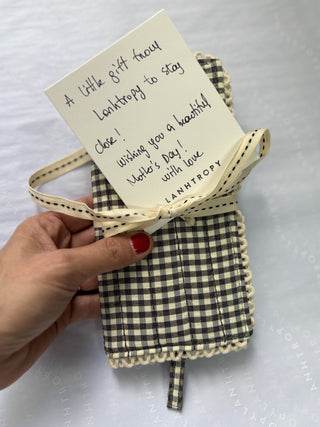 A little gift from
Lanhtropy to stay
close!
wishing you a beautiful
Mother's Day!
with love
LANHTROPY
LANHTROPY